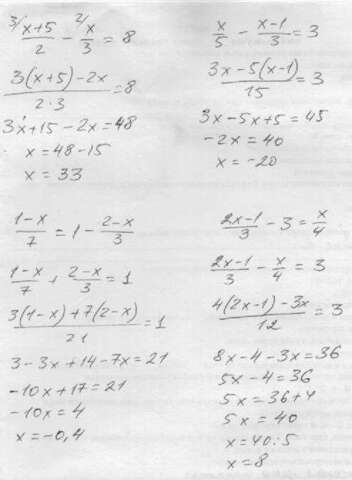 3/ x+5/2 - 2/ x/3 = 8
3(x+5)-2x/2·3 = 8
3x+15-2x=48
x = 48-15
x = 33
x/5 - x-1/3 = 3
3x-5(x-1)/15 = 3
3x-5x+5=45
-2x=40
x=-20
1-x/7 = 1- 2-x/3
1-x/7 + 2-x/3 = 1
3(1-x)+7(2-x)/21 = 1
3-3x+14-7x=21
-10x+17=21
-10x=4
x=-0,4
2x-1/3 - 3 = x/4
2x-1/3 - x/4 = 3
4(2x-1)-3x/12 = 3
8x-4-3x=36
5x-4=36
5x=36+4
5x=40
x=40:5
x=8